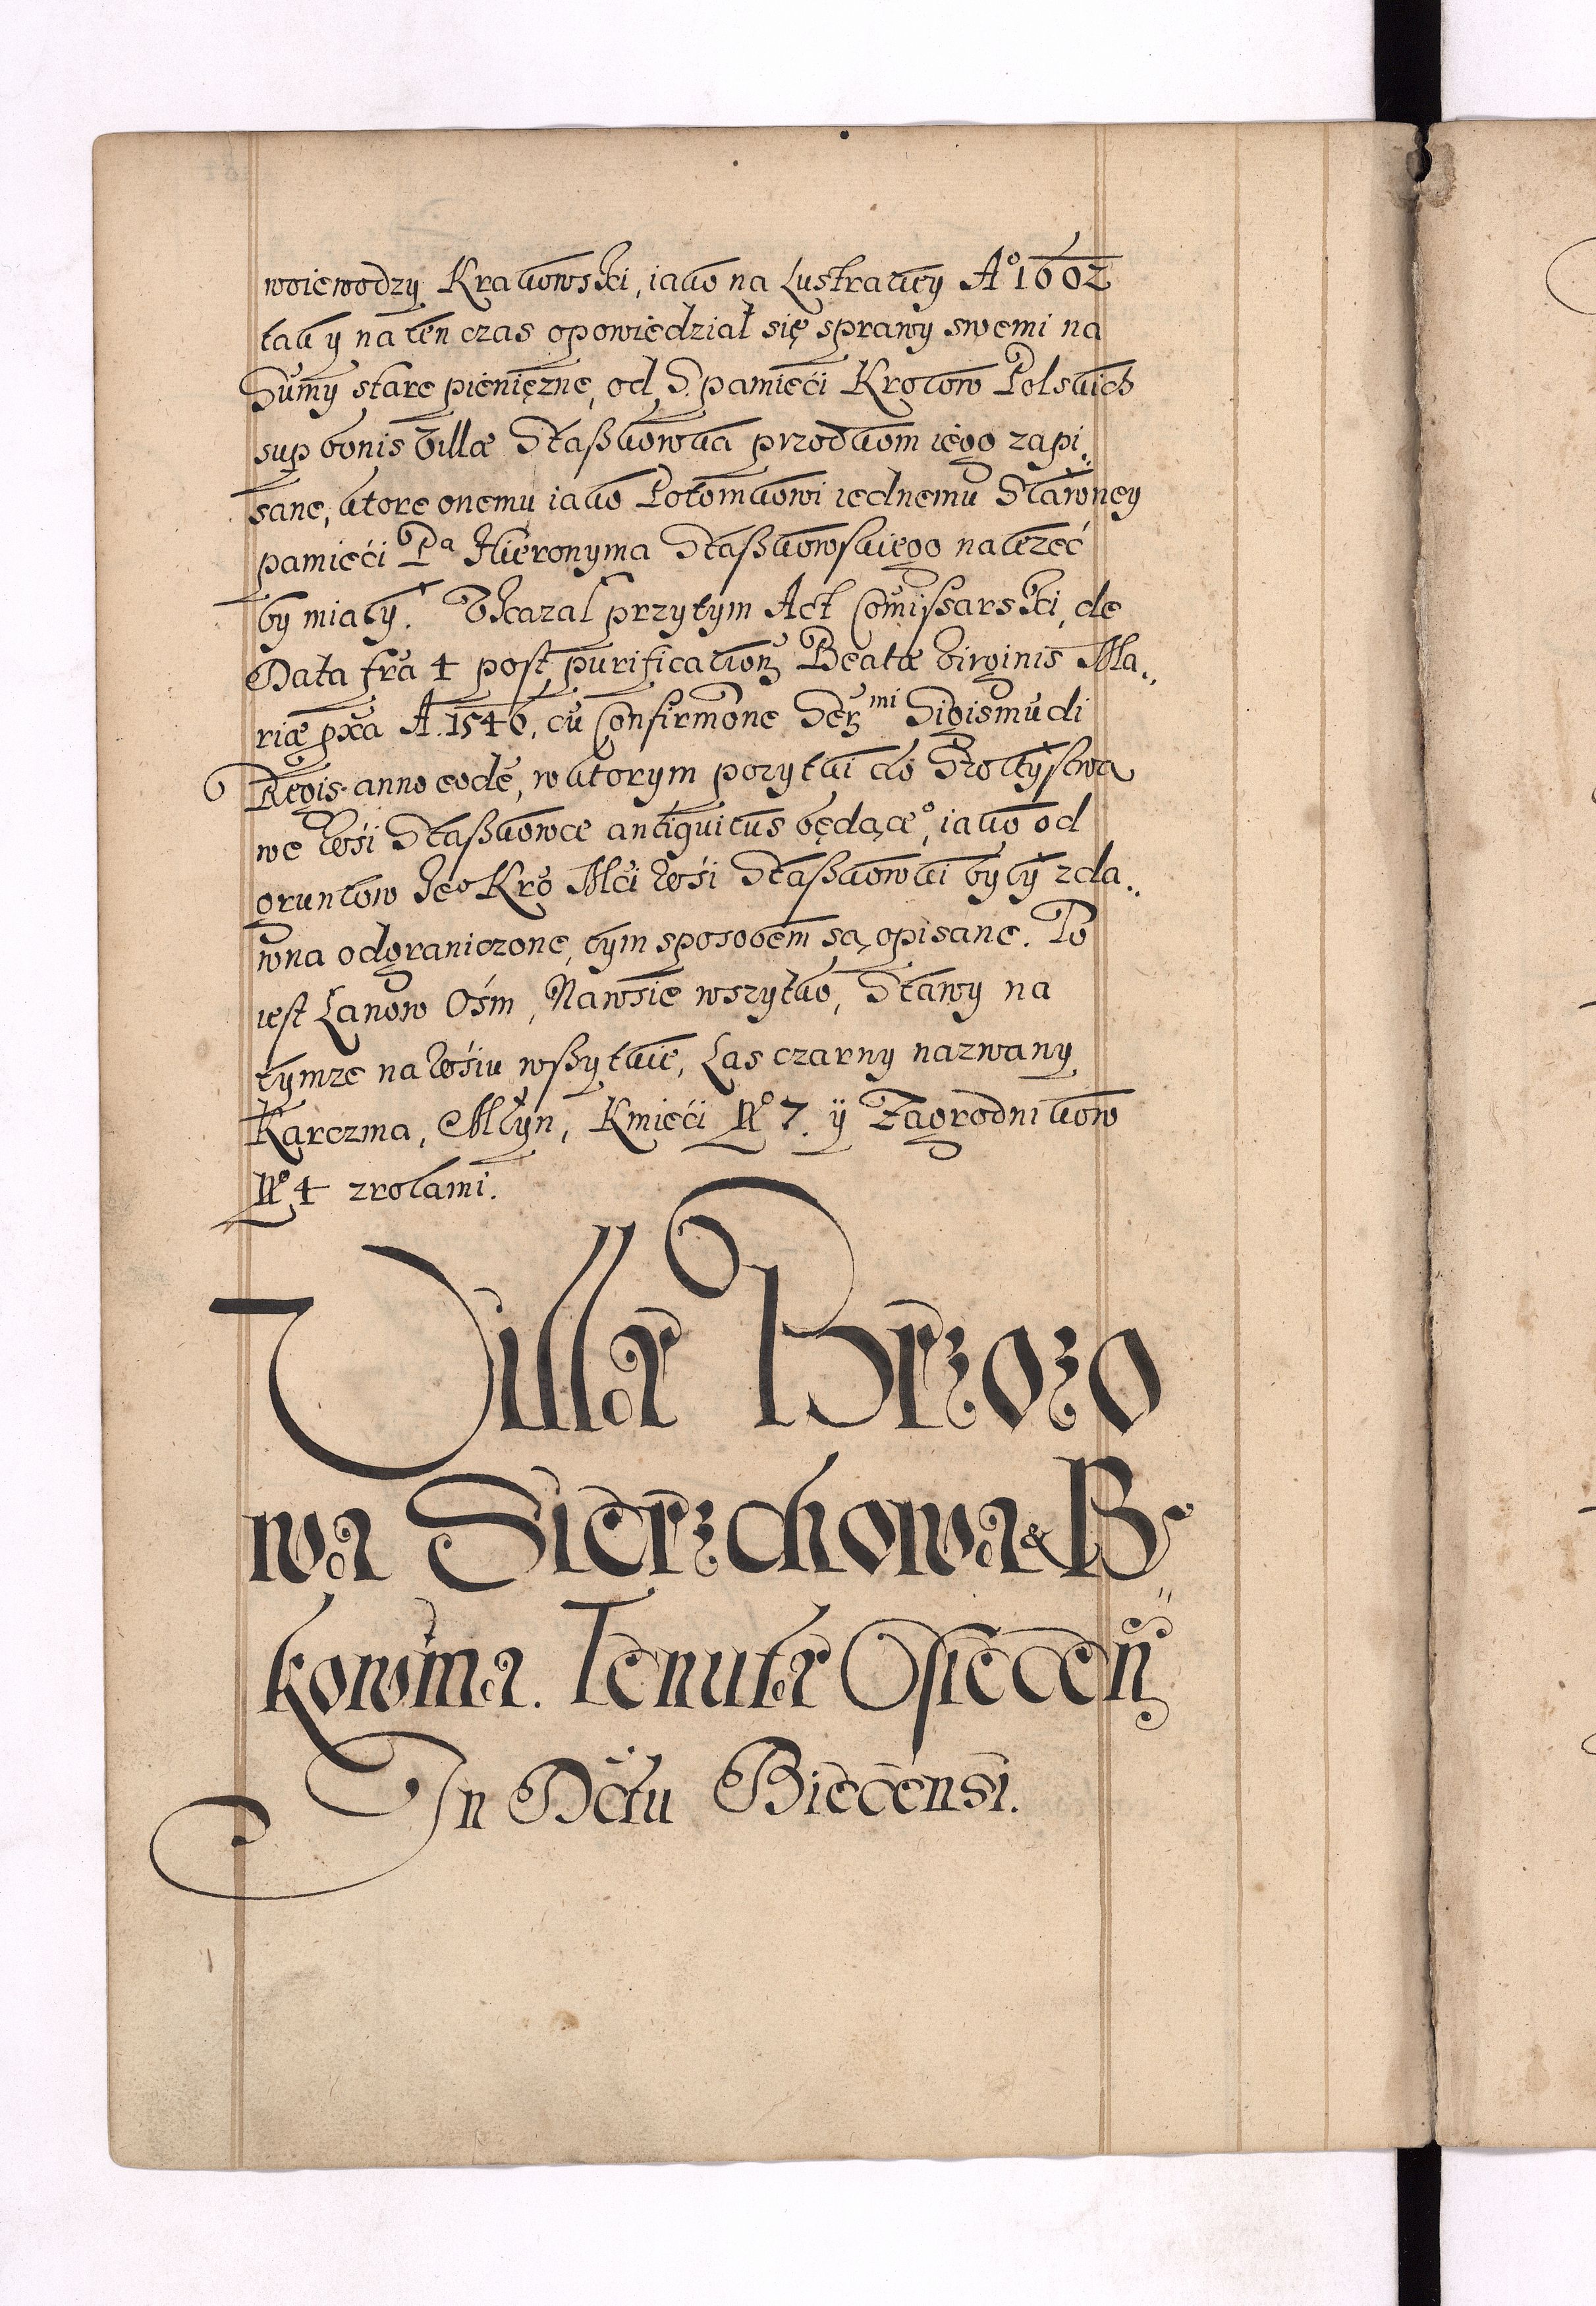 woiewodzy Krakowski, iako na Lustrakcy A° 1602
tak y na ten czas opowiedział się sprawy swemi na
Summy stare pieniężne, od S. pamięci Krolow Polskich
sup bonis Villæ Staßkowka przodkom iego zapi„
sane, ktore onemu iako Potomkowi iednemu Sławney
pamieći Pa Hieronyma Staßkowskiego należeć
by miały. Vkazał przytym Act Comissarski, de
Data fra 4 post purification Beatæ Virginis Ma„
riæ pxa A. 1546, cu Confirmone Sermi Sigismudi
Regis anno eode, w ktorym pozytki do Szołtystwa
we Wśi Staßkowce antiquitus będące°, iako od
gruntow Ieo Kro Mći Wśi Staßkowki były zda„
wna odgraniczone, tym sposobem są opisane. To
iest Łanow Ośm, Nawsie wszytko, Stawy na
tymze na Wśiu wßytkie, Las czarny nazwany
Karczma, Młyn, Kmieći No 7. ÿ Zagrodnikow
No 4 zrolami.
Villa Brzozo
wa Sierzchowa & B„
kowma. Tenuta Osiecen
In Dctu Biecensi.